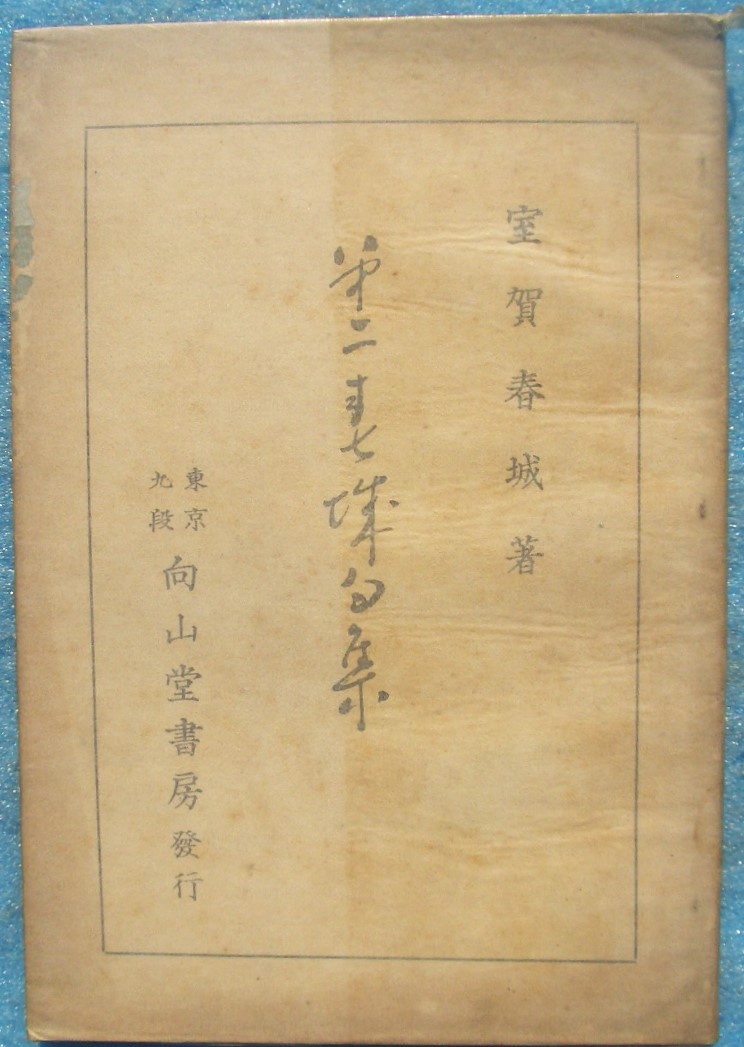 室賀春城著
第二春城句集
東京
九段
向山堂書房發行